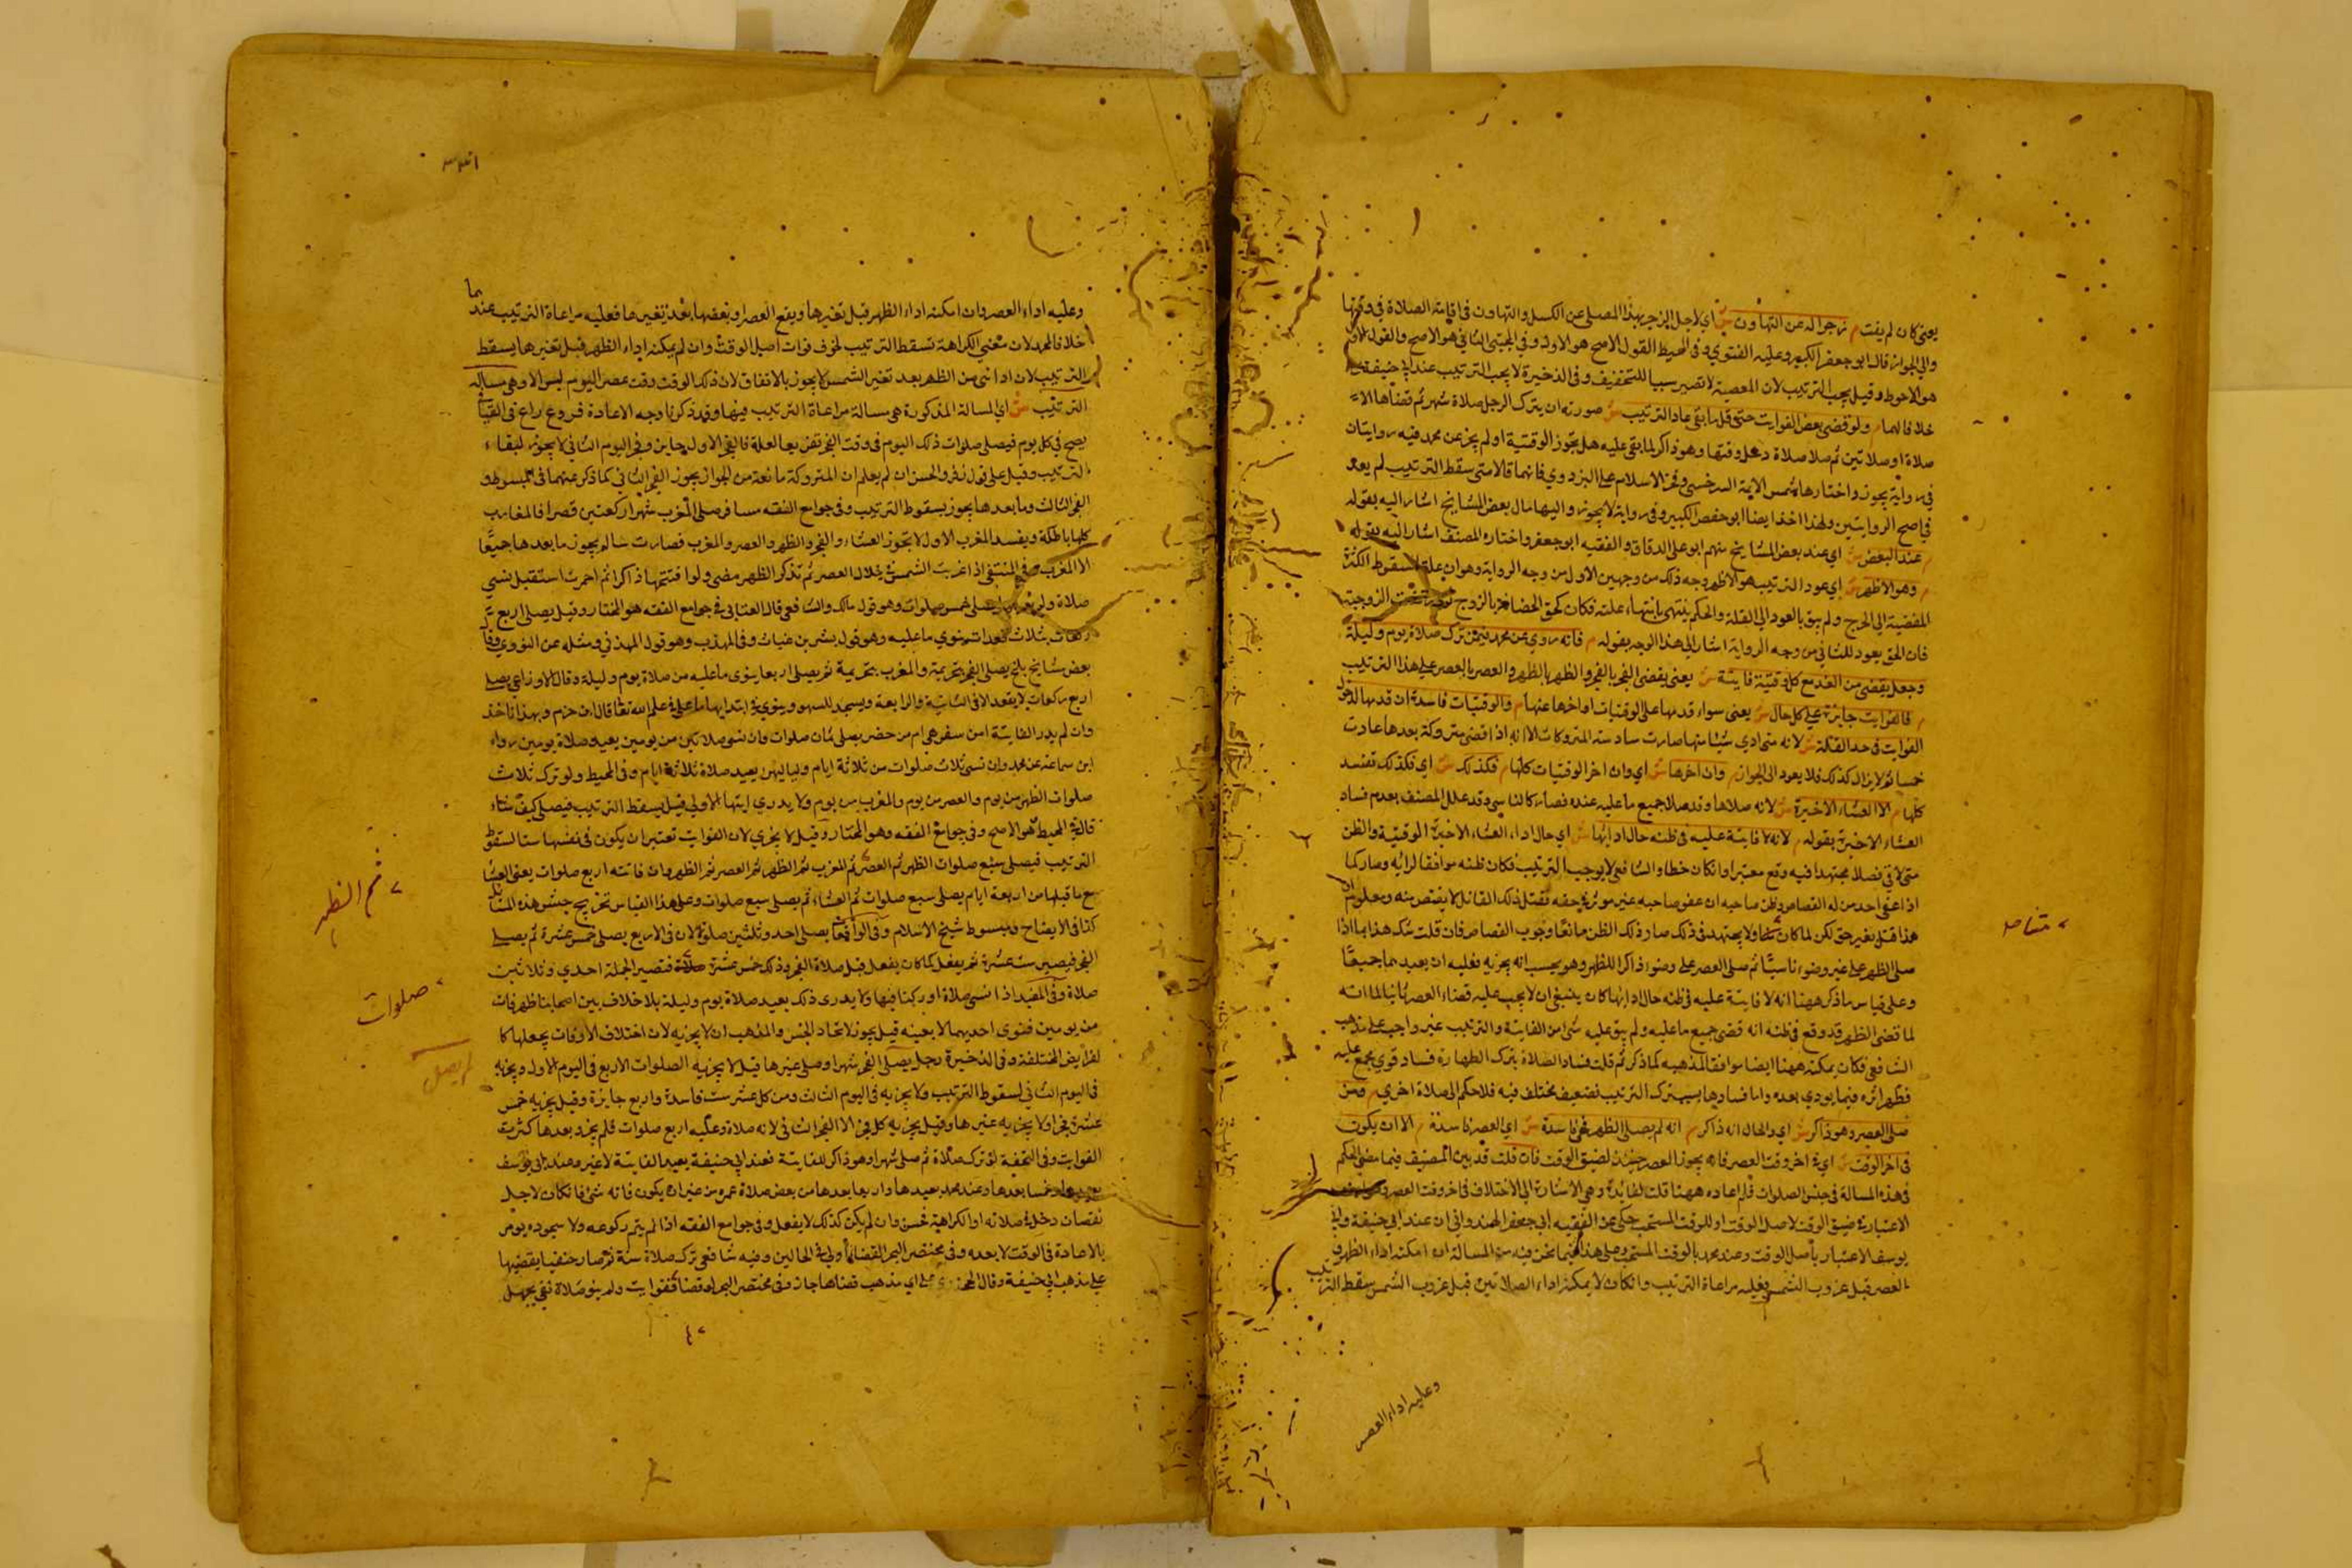 يعنى كان لم يفت م زجرا له عن التهاون ش اي لاجل الزجر بهذا المصلى عن الكسل والتهاون فى اقامة الصلاة فى وقتها
والى الجواز قال ابو جعفر الكبير وعليه الفتوي وفى المحيط القول الاصح هو الاول وفى المجتبى الثانى هو الاصح والقول الاول
هو الاحوط وقيل يجب الترتيب لان المعصية لا تصير سببا للتخفيف وفى الذخيرة لا يجب الترتيب عند ابى حنيفة
خلافا لهما م ولو قضى بعض الفوايت حتى قل ما بقى عاد الترتيب ش صورته ان يترك الرجل صلاة شهر ثم قضاها الا
صلاة او صلاتين ثم صلا صلاة دخل وقتها وهو ذاكر لما بقى عليه هل يجوز الوقتية او لم يجز عن محمد فيه روايتان
فى رواية يجوز واختارها شمس الايمة السرخسى وفخر الاسلام على البزدوي فانهما قالا متى سقط الترتيب لم يعد
فى اصح الروايتين ولهذا اخذ ايضا ابو حفص الكبير وفى رواية لا يجوز واليها مال بعض المشايخ اشار اليه بقوله
م عند البعض ش اي عند بعض المشايخ منهم ابو على الدقاق والفقيه ابو جعفر واختاره المصنف اشار اليه بقوله
م وهو الاظهر ش اي عود الترتيب هو الاظهر وجه ذلك من وجهين الاول من وجه الرواية وهو ان علة السقوط الكثرة
المفضية الى الحرج ولم يبق بالعود الى القلة والحكم ينتهى بانتهاء علته فكان كحق الحضانة بالزوج الزوجية
فان الحق يعود للثانى من وجه الرواية اشار الى هذا الوجه بقوله م فانه روي عن محمد فيمن ترك صلاة يوم وليلة
وجعل يقضى من الغد مع كل وقتية فايتة ش يعنى يقضى الفجر بالفجر والظهر بالظهر والعصر بالعصر على هذا الترتيب
م فالفوايت جايزة على كل حال ش يعنى سواء قدمها على الوقتيات او اخرها عنها م والوقتيات فاسدة ان قدمها لدخول
الفوايت فى حد القلة ش لانه متى ادي شيئا منها صارت سادسة المتروكات الا انه اذا قضى متروكة بعدها عادت
خمسا ثم لا يزال كذلك فلا يعود الى الجواز م وان اخرها ش اي وان اخر الوقتيات كلها م فكذلك ش اي فكذلك تفسد
كلها م الا العشاء الاخيرة ش لانه صلاها وقد صلا جميع ما عليه عنده فصار كالناسى وقد علل المصنف بعدم فساد
العشاء الاخيرة بقوله م لانه لا فايتة عليه فى ظنه حال ادايها ش اي حال اداء العشاء الاخيرة الوقتية والظن
متى لاقى فصلا مجتهدا فيه وقع معتبرا وان كان خطا والشافعى لا يوجب الترتيب فكان ظنه موافقا لرايه وصار كما
اذا عفى احد من له القصاص وظن صاحبه ان عفو صاحبه غير موثر فى حقه فقتل ذلك القاتل لا يقتص منه ومعلوم ان
هذا قتل بغير حق لكن لما كان ولا يجتهد فى ذلك صار ذلك الظن مانعا وجوب القصاص فان قلت شك هذا بما اذا
صلى الظهر على غير وضوء ناسيا ثم صلى العصر على وضوء ذاكرا للظهر وهو يحسب انه يجزيه فعليه ان يعيدهما جميعا
وعلى قياس ما ذكر ههنا انه لا فايتة عليه فى ظنه حال ادايها كان ينبغى ان لا يجب عليه قضاء العصر ثانيا لما انه
لما قضى الظهر قد وقع فى ظنه انه قضى جميع ما عليه ولم يبق عليه شى من الفايتة والترتيب غير واجب على مذهب
الشافعى فكان يمكنه ههنا ايضا موافقا لمذهبه كما ذكر ثم قلت فساد الصلاة بترك الطهارة فساد قوي مجمع عليه
فظهر اثره فيما يودي بعده واما فسادها بسبب ترك الترتيب فضعيف مختلف فيه فلا حكم الى صلاة اخري م ومن
صلى العصر وهو ذاكر ش اي والحال انه ذاكر م انه لم يصل الظهر فهى فاسدة ش اي العصر فاسدة م الا ان يكون
فى اخر الوقت ش اي فى اخر وقت العصر فانه يجوز العصر حينئذ لضيق الوقت فان قلت قد بين المصنف فيما مضى الحكم
فى هذه المسالة فى جنس الصلوات فلم اعاده ههنا قلت لفايدة وهى الاشارة الى الاختلاف فى اخر وقت العصر
الاعتبار فى ضيق الوقت لاصل الوقت او للوقت المستحب حكى عن الفقيه ابى جعفر الهندوانى ان عند ابى حنيفة وابى
يوسف الاعتبار باصل الوقت وعند محمد بالوقت المستحب وعلى هذا فيما نحن فيه من المسالة ان امكنه اداء الظهر و
العصر قبل غروب الشمس فعليه مراعاة الترتيب وان كان لا يمكنه اداء الصلاتين قبل غروب الشمس سقط الترتيب
وعليه اداء العصر
وعليه اداء العصر وان امكنه اداء الظهر قبل تغيرها ويقع العصر او بعضها بعد تغيرها فعليه مراعاة الترتيب عندهما
خلافا لمحمد لان معنى الكراهة تسقط الترتيب لخوف فوات اصل الوقت وان لم يمكنه اداء الظهر قبل تغيرها يسقط
الترتيب لان اداء شى من الظهر بعد تغير الشمس لا يجوز بالاتفاق لان ذلك الوقت وقت عصر اليوم ليس الا وهى مسالة
الترتيب ش اي المسالة المذكورة هى مسالة مراعاة الترتيب فيها وقد ذكرنا وجه الاعادة فروع
يصح فى كل يوم فيصلى صلوات ذلك اليوم فى وقت الفجر تفريعا لعلة فالفجر الاول جايز وفجر اليوم الثانى لا يجوز لبقاء
الترتيب وقيل على قول زفر والحسن ان لم يعلم ان المتروكة مانعة من الجواز يجوز الفجر الثانى كما ذكر عنهما فى المبسوط و
الفجر الثالث وما بعدها يجوز بسقوط الترتيب وفى جوامع الفقه مسافر صلى المغرب شهرا ركعتين قصرا فالمغارب
كلها باطلة ويفسد المغرب الاول لا يجوز العشاء والفجر والظهر والعصر والمغرب فصارت يجوز ما بعدها جميعا
الا المغرب وفى المنتقى اذا غربت الشمس فى خلال العصر ثم تذكر الظهر مضى ولو افتتحها ذاكرا ثم احمرت استقبل نسى
صلاة يصلى خمس صلوات وهو قول مالك والشافعى قال العتابى فى جوامع الفقه هو المختار وقيل يصلى اربع
ركعات بثلاث قعدات ينوي ما عليه وهو قول بشر بن غياث وفى المهذب وهو قول المزنى ومثله عن النووي وقال
بعض مشايخ بلخ يصلى الفجر بتحريمة والمغرب بتحريمة ثم يصلى اربعا ينوى ما عليه من صلاة يوم وليلة وقال الاوزاعى يصلى
اربع ركعات لا يقعد الا فى الثانية والرابعة ويسجد للسهو وينوي فى ابتدايها ما عليه فى علم الله تعالى قال ابن حزم وبهذا ناخذ
وان لم يدر الفايتة امن سفر هى ام من حضر يصلى ثمان صلوات وان نسى صلاتين من يومين يعيد صلاة يومين رواه
ابن سماعة عن محمد وان نسى ثلاث صلوات من ثلاثة ايام ولياليهن يعيد صلاة ثلاثة ايام وفى المحيط ولو ترك ثلاث
صلوات الظهر من يوم والعصر من يوم والمغرب من يوم ولا يدري ايتها الاولى قيل يسقط الترتيب فيصلى كيف شاء
قال فى المحيط هو الاصح وفى جوامع الفقه وهو المختار وقيل لا يجزي لان الفوايت تعتبر ان يكون فى نفسها ستا لسقوط
الترتيب فيصلى سبع صلوات الظهر ثم العصر ثم المغرب ثم الظهر ثم العصر ثم الظهر وان فاتته اربع صلوات يعنى العشاء
مع ما قبلها من اربعة ايام يصلى سبع صلوات ثم العشاء ثم يصلى سبع صلوات وعلى هذا القياس تخريج جنس هذه المسائل
كذا فى الايضاح مبسوط شيخ الاسلام وفى الواقعات يصلى احد وثلثين صلوة لان فى الاربع يصلى خمس عشرة ثم يصلى
الفجر فيصير ست عشرة ثم يفعل كما كان يفعل قبل صلاة الفجر وذلك خمس عشرة صلاة فتصير الجملة احدي وثلاثين
صلاة وفى المفيد اذا نسى صلاة او ركنا فيها ولا يدرى ذلك يعيد صلاة يوم وليلة بلا خلاف بين اصحابنا ظهر فات
من يومين فنوى احديهما لا بعينه قيل يجوز لاتحاد الجنس والمذهب ان لا يجزيه لان اختلاف الاوقات يجعلها كا
لفرايض المختلفة وفى الذخيرة رجل يصلى الفجر شهرا وصلى غيرها قيل لا يجزيه الصلوات الاربع فى اليوم الاول ويجزيه
فى اليوم الثانى لسقوط الترتيب ولا يجزيه فى اليوم الثالث ومن كل عشر ست فاسدة واربع جايزة وقيل يجزيه خمس
عشرة فجرا ولا يجزيه غيرها وقيل يجزيه كل فجر الا الفجر الثانى لانه صلاة وعليه اربع صلوات فلم يجز وبعدها كثرت
الفوايت وفى التحفة لو ترك صلاة ثم صلى شهرا وهو ذاكر للفايتة فعند ابى حنيفة يعيد الفايتة لا غير وعند ابى يوسف
خمسا بعدها وعند محمد يعيدها واربعا بعدها من بعض صلاة عمره من غير ان يكون فاته شى فان كان لاجل
نقصان دخل فى صلاته او لكراهية فحسن وان لم يكن كذلك لا يفعل وفى جوامع الفقه اذا لم يتم ركوعه ولا سجوده يومر
بالاعادة فى الوقت لا بعده وفى مختصر البحر القضا اولى فى الحالين وفيه شافعى ترك صلاة سنة ثم صار حنفيا يقضيها
على مذهب ابى حنيفة وقال على اي مذهب قضاها جاز وفى مختصر البحر لو قضا فوايت ولم ينو صلاة نفى يجهل
ثم الظهر
صلوات
لم يصل